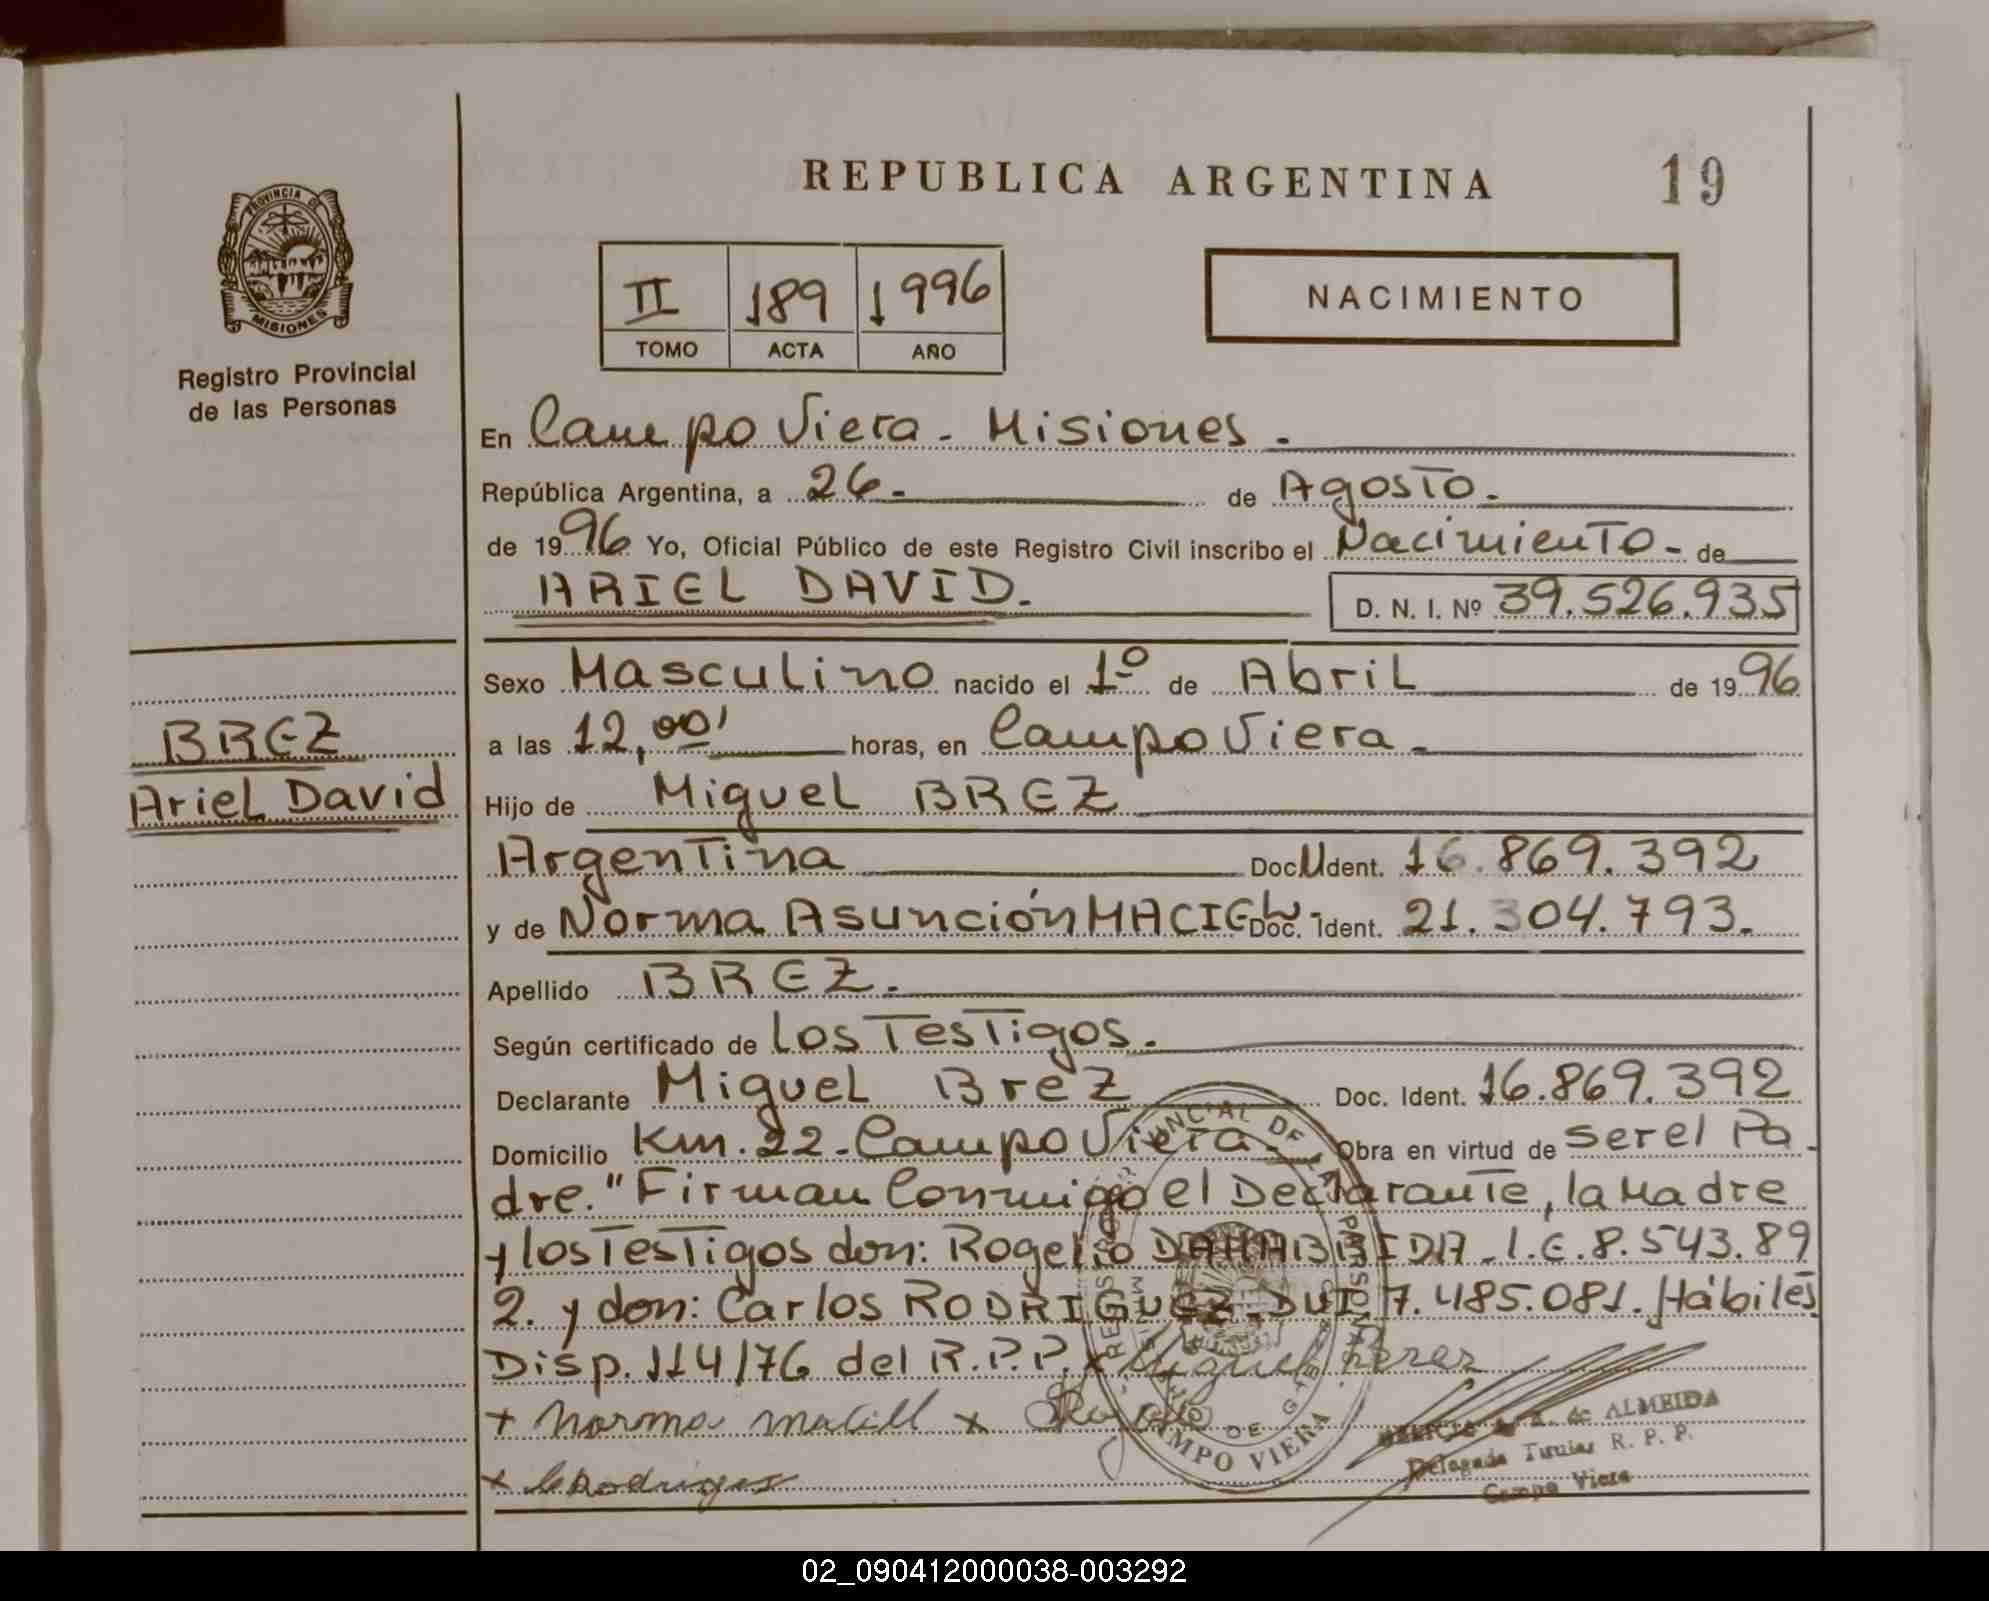 REPUBLICA ARGENTINA 19
PROVINCIA DE
MISIONES
Registro Provincial
de las Personas
II 189 1996
TOMO ACTA AÑO
NACIMIENTO
En Campo Viera - Misiones.
República Argentina, a 26 - de Agosto.
de 1996 Yo, Oficial Público de este Registro Civil inscribo el Nacimiento - de
ARIEL DAVID. D. N. I. Nº 39.526.935
Sexo Masculino nacido el 1º de Abril de 1996
BREZ
a las 12,00' horas, en Campo Viera -
Ariel David
Hijo de Miguel BREZ
Argentina Doc.U Ident. 16.869.392
y de Norma Asunción MACIEL - Doc. Ident. 21.304.793.
Apellido BREZ.
Según certificado de los Testigos.
Declarante Miguel Brez Doc. Ident. 16.869.392
Domicilio Km. 22 - Campo Viera - Obra en virtud de ser el Pa-
dre." Firman Conmigo el Declarante, la Madre
y los Testigos don: Rogelio DAHABRIDA - L.E. 8.543.89
2. y don: Carlos RODRIGUEZ - DUI 7.485.081. Hábiles
Disp. 114/76 del R.P.P. x Miguel Brez
+ Norma macill x
x C Rodrigues
CAMPO VIERA
de ALMEIDA
Delegada Titular R. P. P.
Campo Viera
02_090412000038-003292